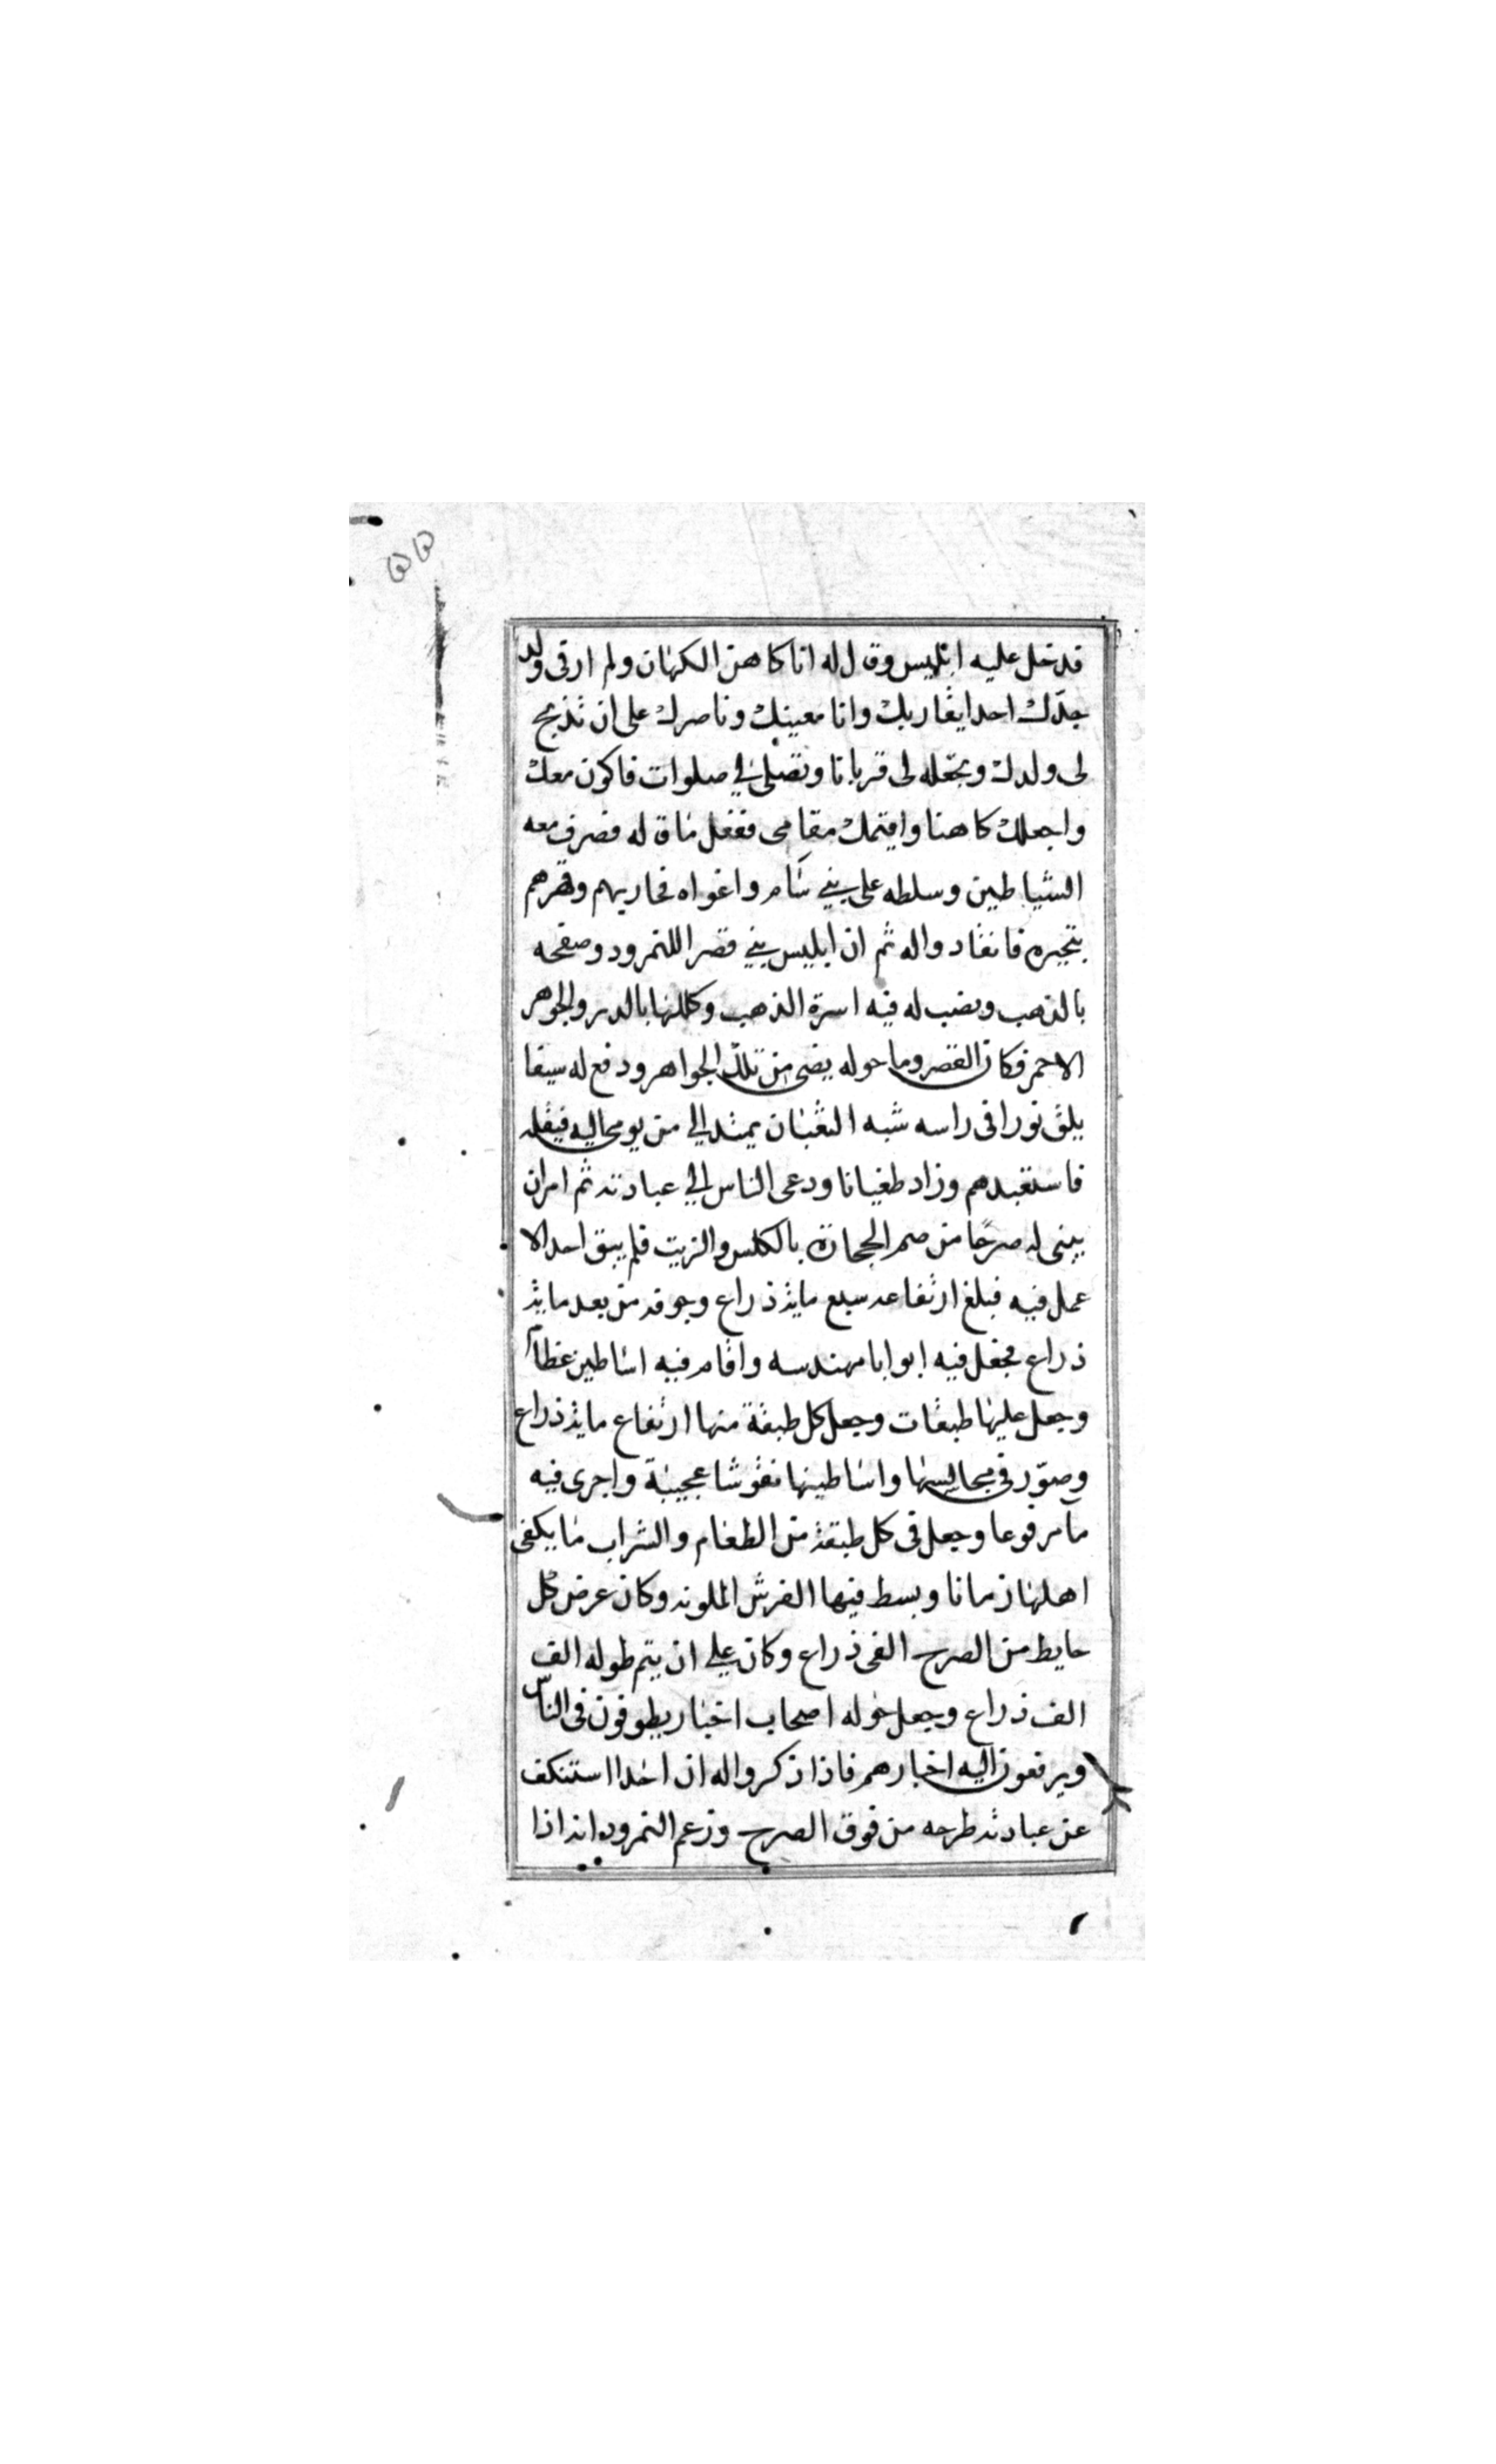 ٥٥
فدخل عليه ابليس وقال له انا كاهن الكهان ولم ارفى ولد
جدّك احد ايقاربك وانا معينك وناصرك على ان تذبح
لى ولدك وتجعله لى قربانا وتصلى لي صلوات فاكون معك
واجعلك كاهنا واقيمك مقامى ففعل ماقاله فصرف معه
الشياطين وسلطه على بني سام واغواه فحاربهم وقهرهم
بتجبره فانقاد واله ثم ان ابليس بني قصرا للنمرود وصفحه
بالذهب ونصب له فيه اسرة الذهب وكللها بالدر والجوهر
الاحمر فكان القصر وما حوله يضى من تلك الجواهر ودفع له سيفا
يلق نورا فى راسه شبه الثعبان يمتد الي من يومى اليه فيقتله
فاستعبدهم وزاد طغيانا ودعى الناس الي عبادته ثم امران
يبنى له صرحا من صم الحجارة بالكلس والزيت فلم يبق احد الا
عمل فيه فبلغ ارتفاعه سبع مايه ذراع وجوفه من بعد مايه
ذراع فجعل فيه ابوابا مهندسه واقام فيه اساطين عظام
وجعل عليها طبقات وجعل كل طبقة منها ارتفاع مايه ذراع
وصوّر فى مجالسها واساطينها نقوشا عجيبة واجرى فيه
مآ مرفوعا وجعل فى كل طبقة من الطعام والشراب مايكفى
اهلها زمانا وبسط فيها الفرش الملونه وكان عرض كل
حايط من الصرح الفى ذراع وكان علي ان يتم طوله الف
الف ذراع وجعل حوله اصحاب اخبار يطوفون فى الناس
ويرفعون اليه اخبارهم فاذا ذكرواله ان احدا استنكف
عن عبادته طرحه من فوق الصرح وزعم النمرود انه اذا